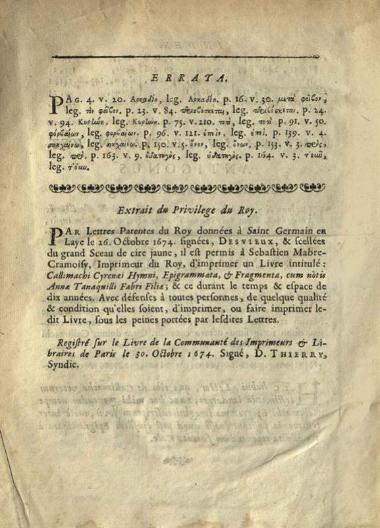 ERRATA.
PAG. 4. v. 20. leg. p. 16. v. 30.
leg. p. 23. v. 84. leg. p. 24.
v. 94. leg. p. 75. v. 210. leg. p. 91. v. 50.
leg. p. 96. v. 121. leg. p. 139. v. 4.
leg. p. 150. v. 5. leg. p. 153. v. 3.
leg. p. 163. v. 9. leg. p. 164. v. 3.
leg.
Extrait du Privilege du Roy.
PAR Lettres Patentes du Roy données à Saint Germain en
Laye le 26. Octobre 1674. signées, DESVIEUX, & scellées
du grand Sceau de cire jaune, il est permis à Sebastien Mabre-
Cramoisy, Imprimeur du Roy, d'imprimer un Livre intitulé:
Callimachi Cyrenei Hymni, Epigrammata, & Fragmenta, cum notis
Anna Tanaquilli Fabri Filia; & ce durant le temps & espace de
dix années. Avec défenses à toutes personnes, de quelque qualité
& condition qu'elles soient, d'imprimer, ou faire imprimer le-
dit Livre, sous les peines portées par lesdites Lettres.
Registré sur le Livre de la Communauté des Imprimeurs & Li-
braires de Paris le 30. Octobre 1674. Signé, D. THIERRY,
Syndic.